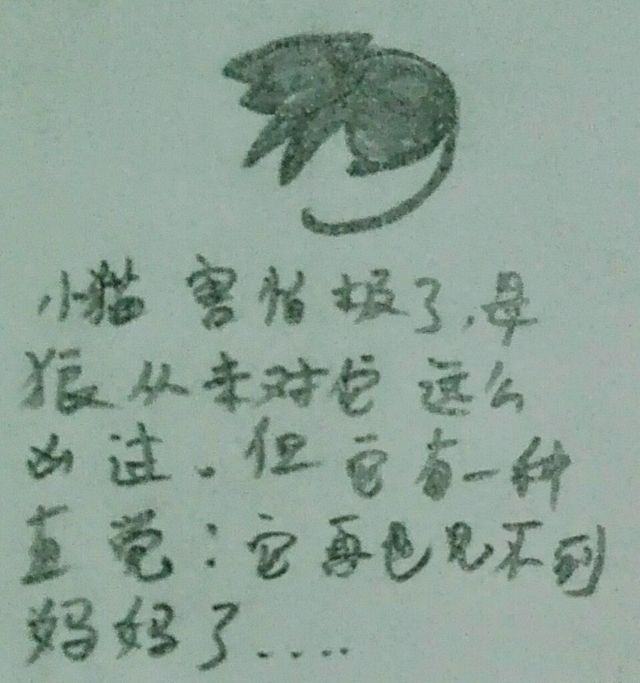 小猫害怕极了,母
狼从未对它这么
凶过。但它有一种
直觉:它再也见不到
妈妈了....